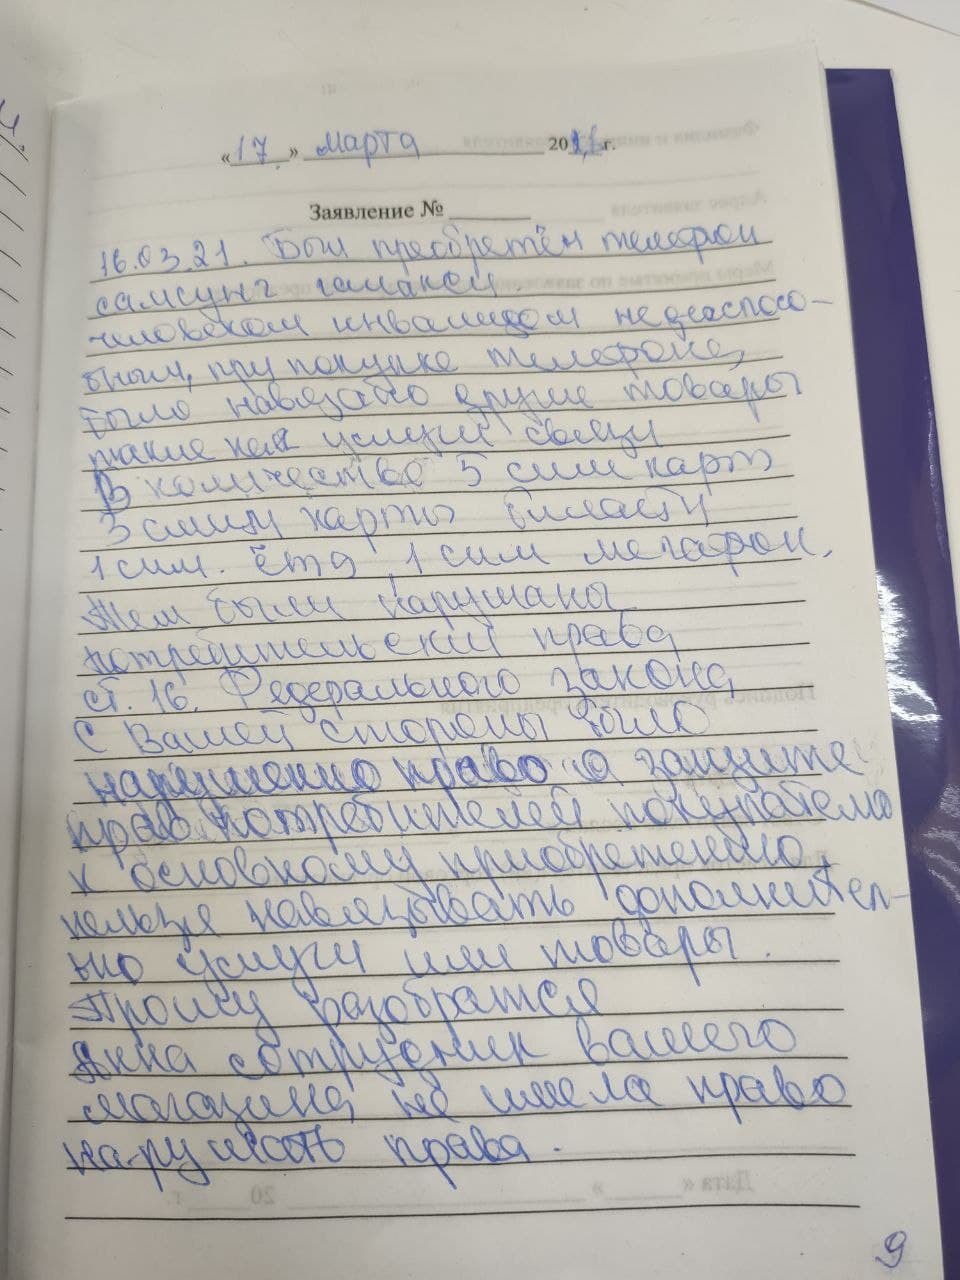 «17» марта 2021 г.
Заявление №
16.03.21. Был преобретён телефон
самсунг галакси
человеком инвалидом недееспосо-
бным, при покупке телефона,
было навязано другие товары
такие как услуги связи
В количестве 5 сим карт
3 симм карты билайн
1 сим. ёта, 1 сим мегафон.
тем были нарушаны
потребительский права
ст. 16. Федерального закона
С Вашей стороны было
нарушенно право о защите
прав потребителей покупателю
к основному приобретению,
нельзя навязывать дополнител-
но услуги или товары.
Прошу разобратся
Анна сотрудник вашего
магазина, не имела право
на-рушать права.
9